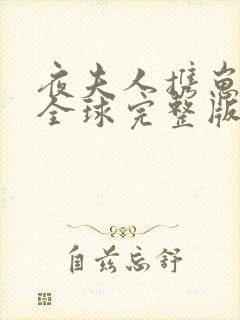 夜夫人携崽
全球完整版
自兹忘舒